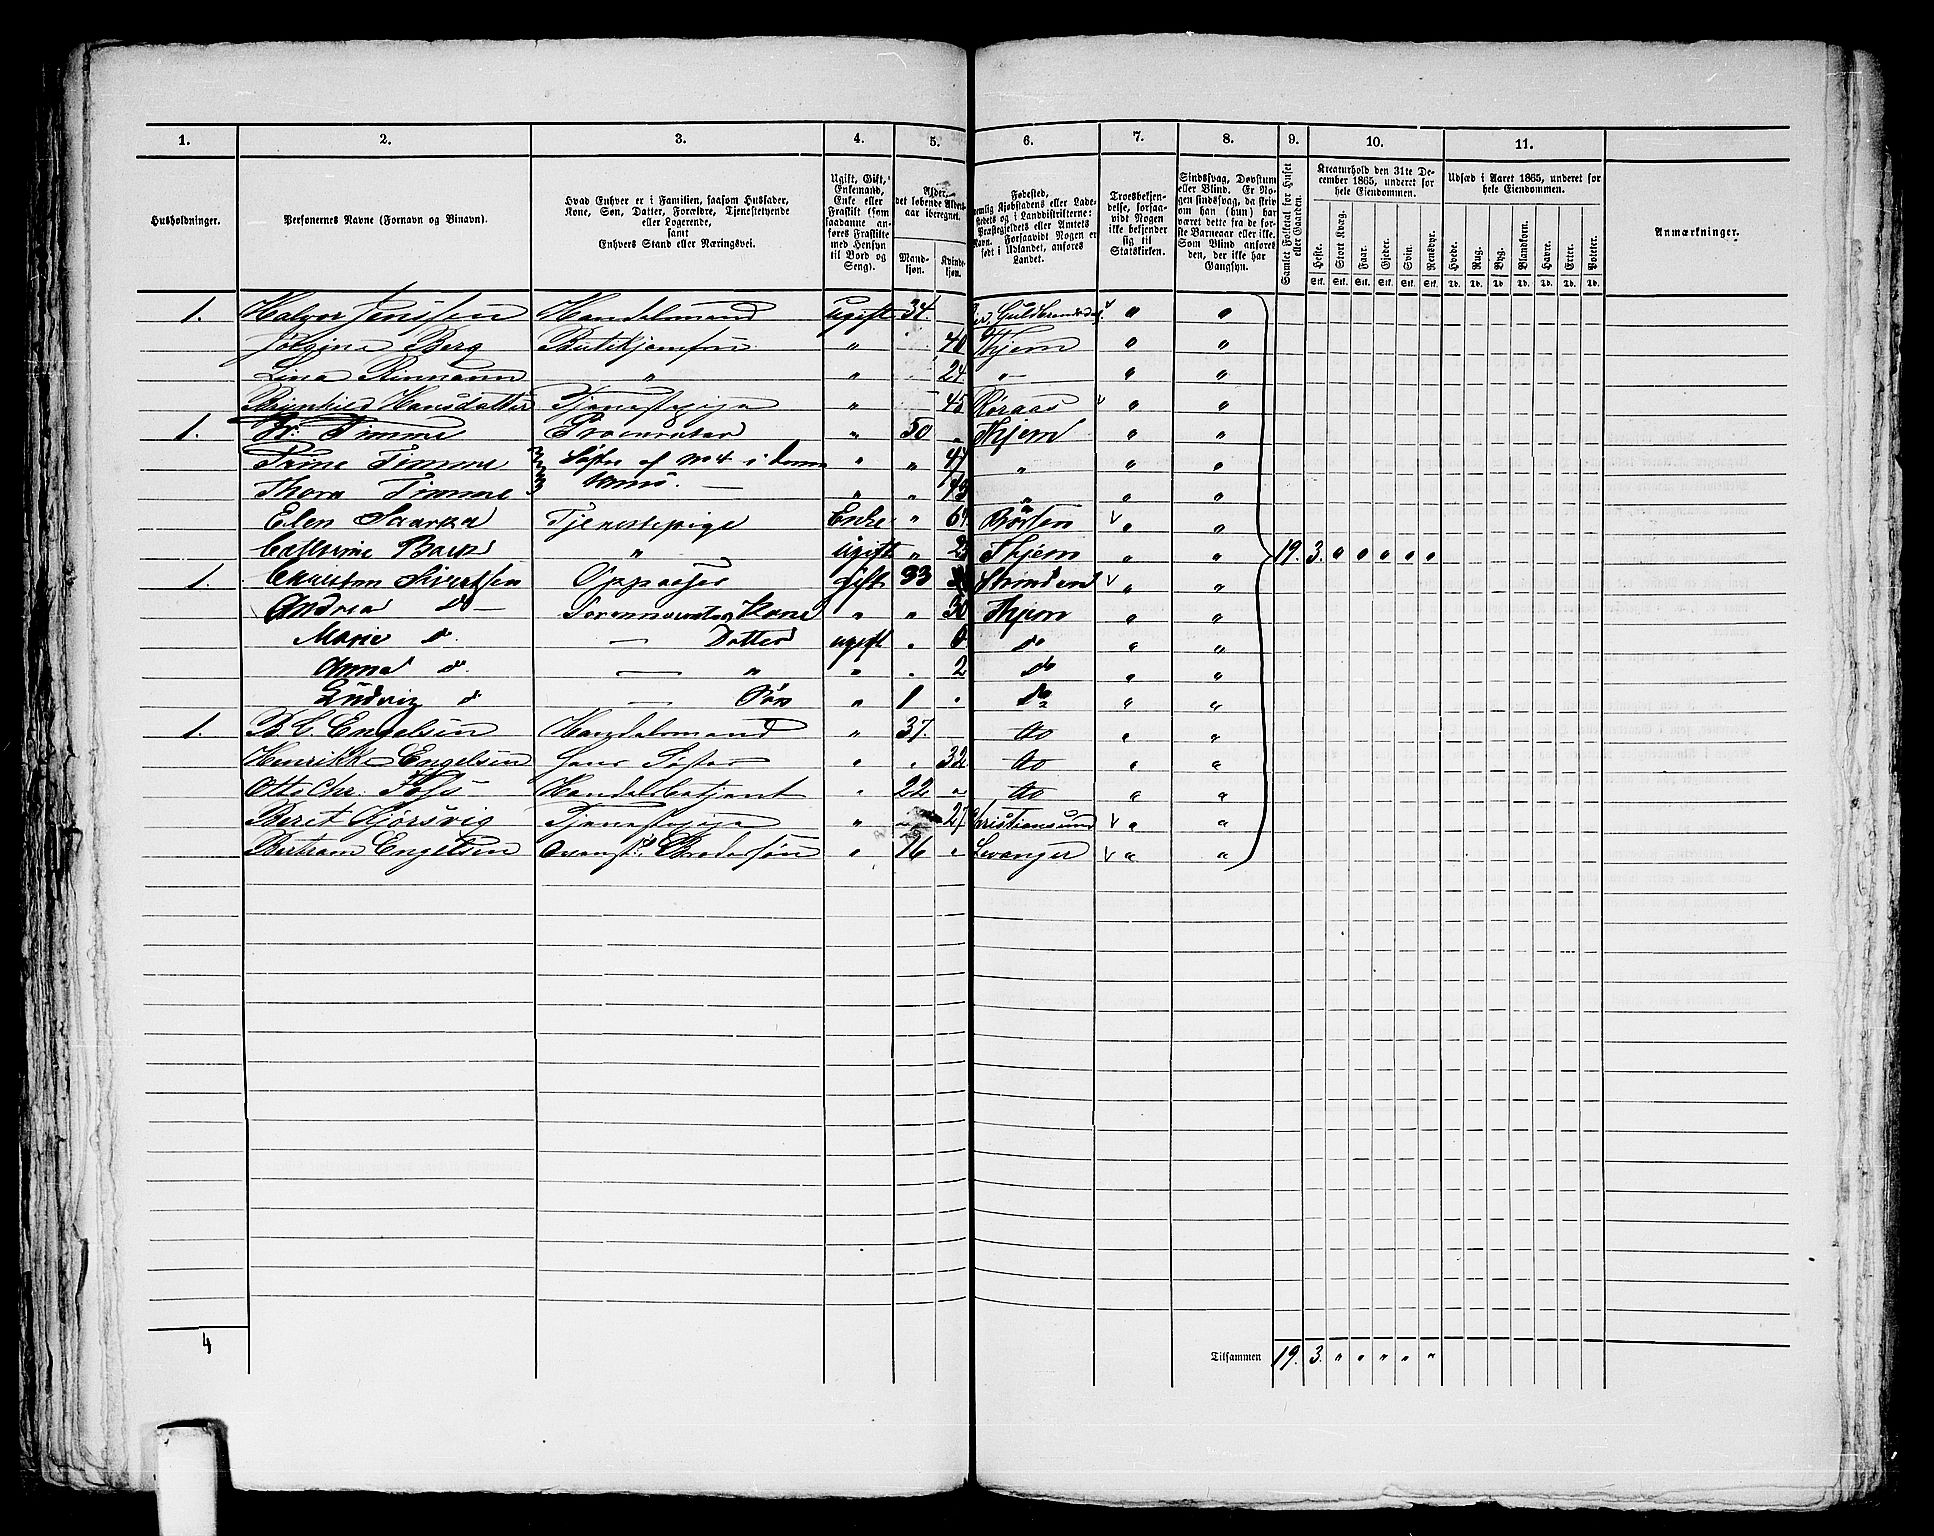 1. 2. 3. 4. 5. 6. 7. 8. 9. 10. 11.
Husholdninger.
Personernes Navne (Fornavn og Binavn).
Hvad Enhver er i Familien, saasom Husfader,
Kone, Søn, Datter, Forældre, Tjenestetyende
eller Logerende,
samt
Enhvers Stand eller Næringsvei.
Ugift, Gift,
Enkemand,
Enke eller
Fraskilt (som
saadanne anføres Fraskilte
med Hensyn
til Bord og
Seng).
Alder,
det løbende Alders-
aar iberegnet.
Mand-
kjøn.
Kvinde-
kjøn.
Fødested,
nemlig Kjøbstadens eller Lade-
stedets og i Landdistrikterne:
Præstegjeldets eller Amtets
Navn. Forsaavidt Nogen er
født i Udlandet, anføres
Landet.
Troesbekjen-
delse, forsaa-
vidt Nogen
ikke bekjender
sig til
Statskirken.
Sindssvag, Døvstum
eller Blind. Er No-
gen sindssvag, da skriv
om han (hun) har
været dette fra de før-
ste Barneaar eller ikke.
Som Blind anføres
den, der ikke har
Gangsyn.
Samlet Folketal for Huset
eller Gaarden.
Kreaturhold den 31te De-
cember 1865, underet for
hele Eiendommen.
Heste. Stort Kvæg. Faar. Gjeder. Svin. Rensdyr.
Stk. Stk. Stk. Stk. Stk. Stk.
Udsæd i Aaret 1865, underet for
hele Eiendommen.
Hvede. Rug. Byg. Blandkorn. Havre. Erter. Poteter.
Td. Td. Td. Td. Td. Td. Td.
Anmærkninger.
1. Halvor Jenssen Handelsmand ugift 34. " "
Berg " 40 Thjem " "
Lina Rinnann " " 24 " " "
Brynhild Hansdatter Tjenestepige " 45 Røraas v " "
1. Timme Procurator " 50 " Thjem " "
Trine Timme Søster af No 4 i denne " " " " "
Thora Timme Huus. — " " " " "
Elen Tjenestepige Enke " 64 Børsen v " "
Cathrine Back " ugift " Thjem " " 19. 3. " " " " "
1. Sivertsen Oppasser gift 33 Strinden v " "
Andrea do — Kone " " 30 Thjem " "
Marie do. — Datter ugift " 6 do " "
Anna do. — " " " 2 do " "
Ludvig do — Søn " 1 " do " "
1. B. C. Engelsen Handelsmand " 37. do " "
Henrikke Engelsen hans Søster " " 32 do " "
Otto Chr. Handelsbetjent " 22 " do " "
Beret Kjørsvig Tjenestepige " " 27 Christiansund v " "
Bertram Engelsen Brodersøn " 16 " Levanger v " "
4
Tilsammen 19. 3. " " " " "